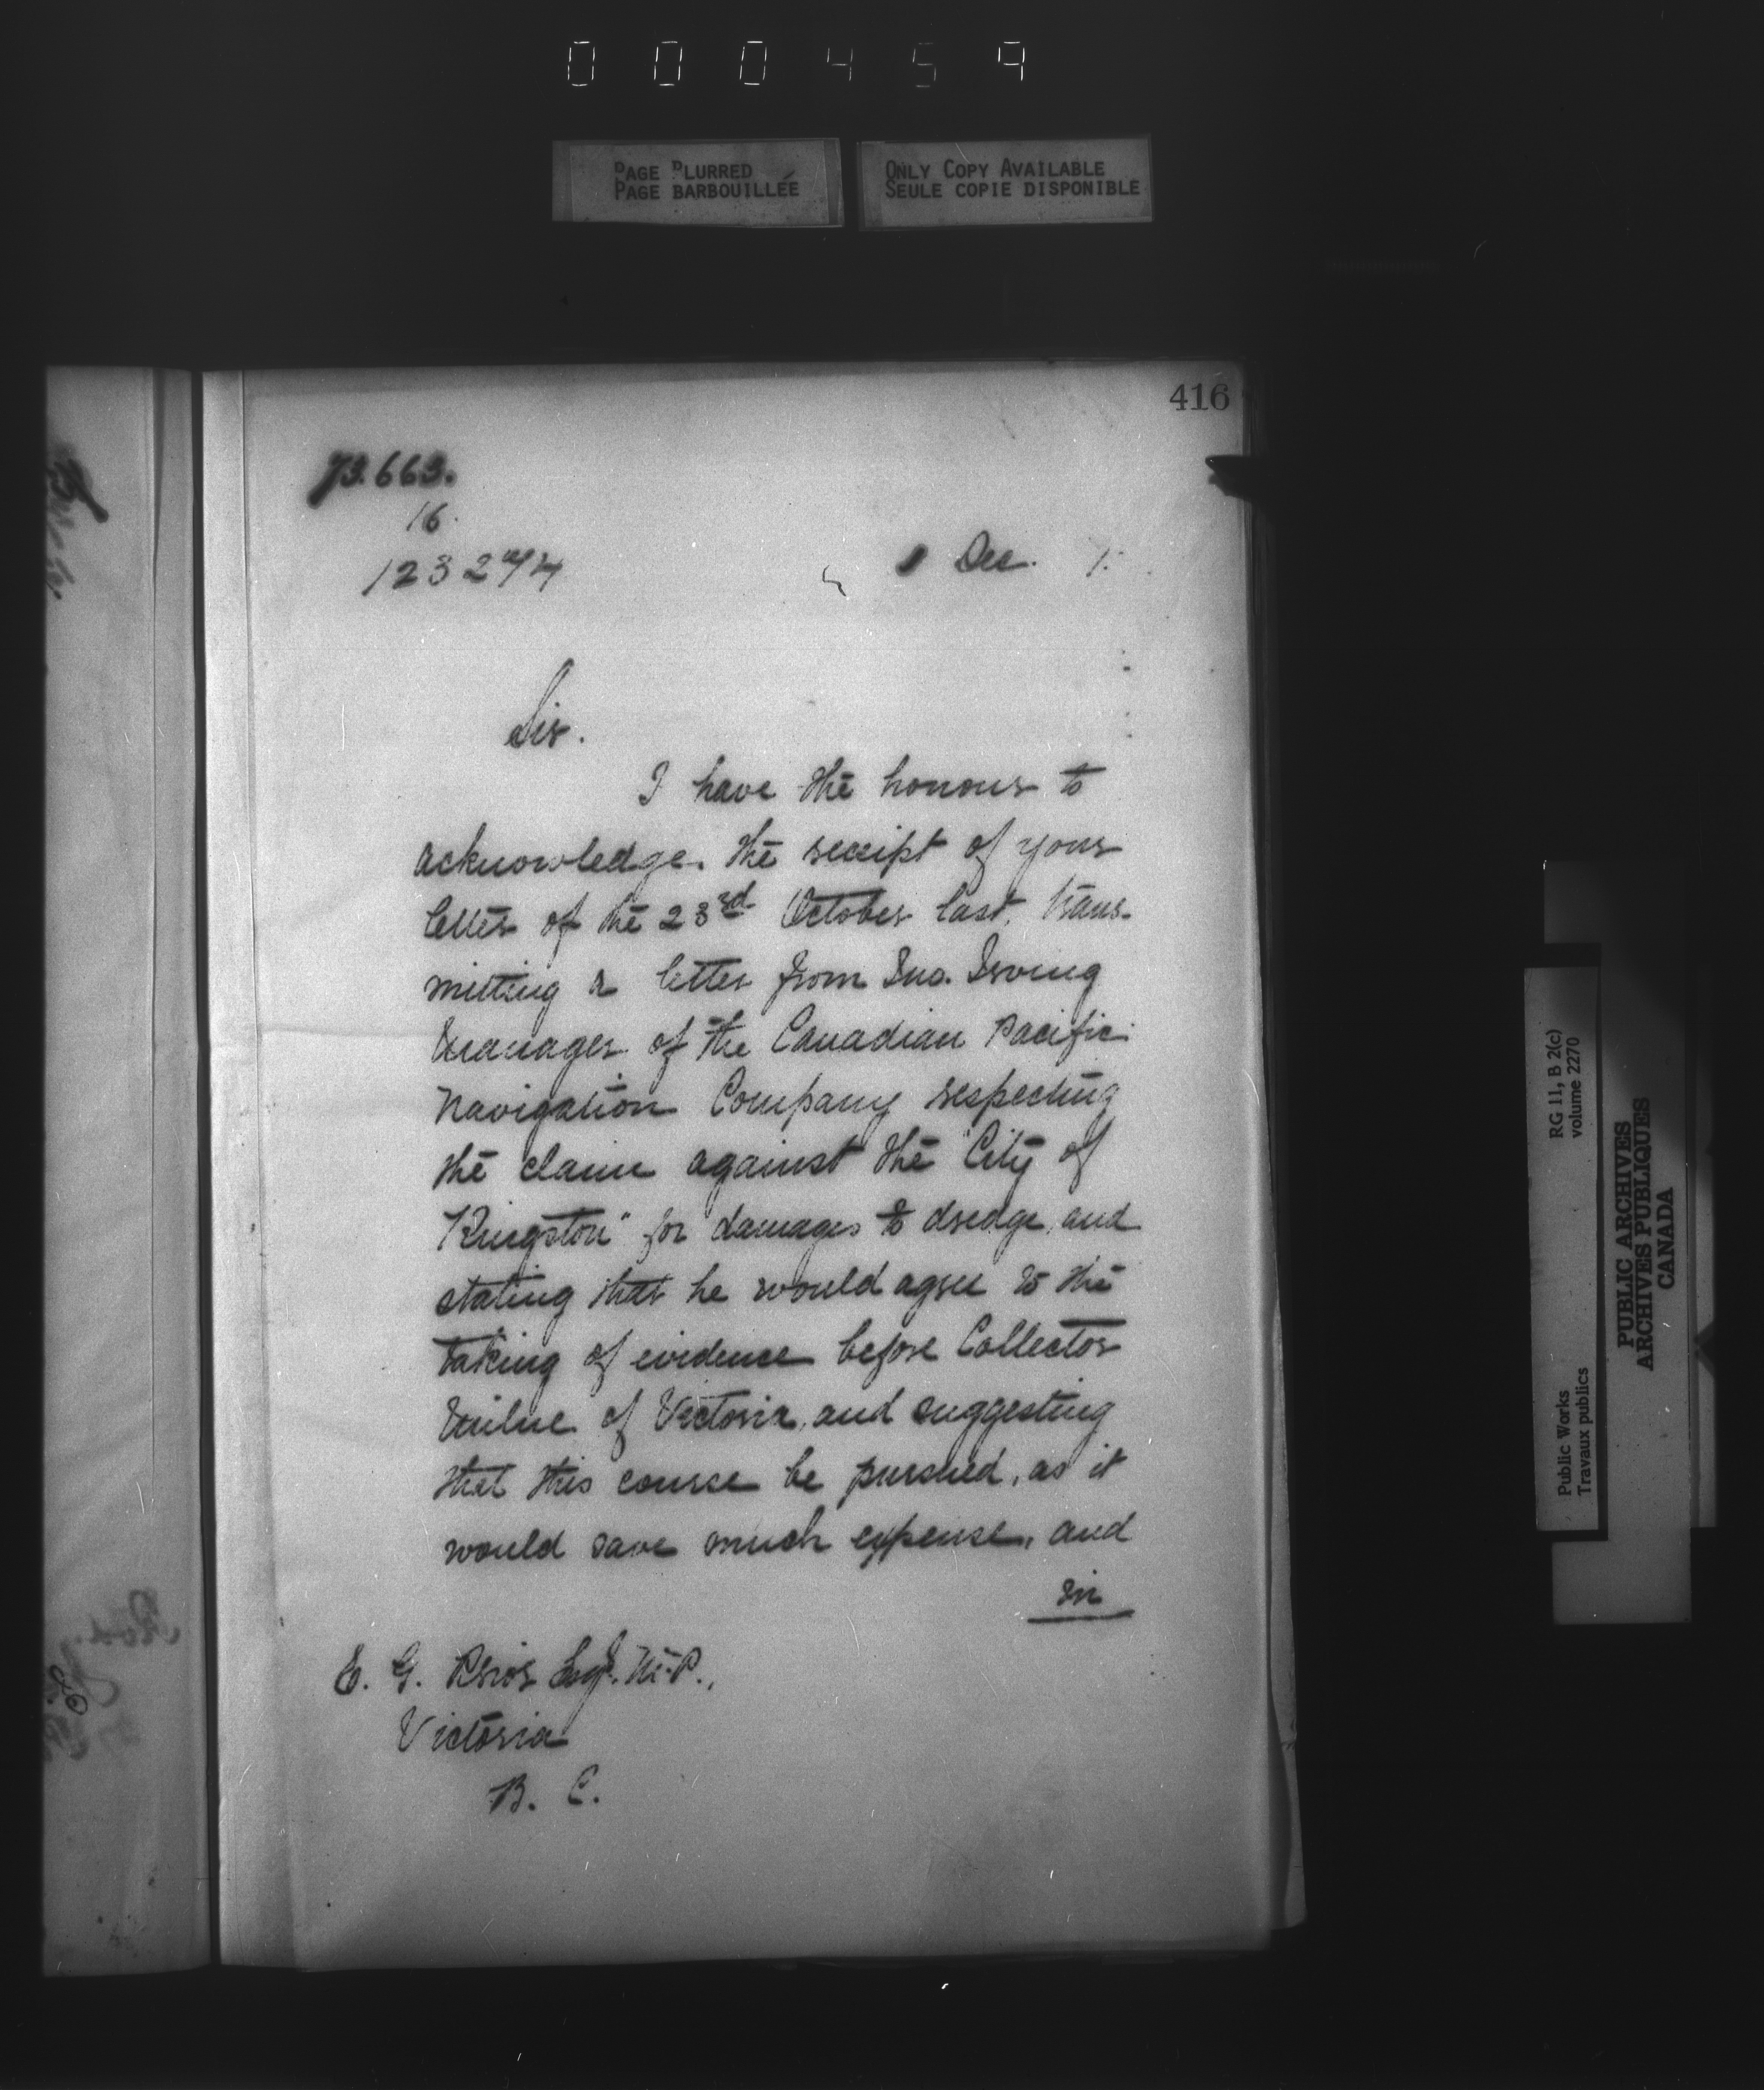 000459
PAGE BLURRED
PAGE BARBOUILLÉE
ONLY COPY AVAILABLE
SEULE COPIE DISPONIBLE
416
73.663.
16.
Dec.
Sir.
I have the honour to
acknowledge. the receipt of your
letter of the 23rd October last, trans-
mitting a letter from Jno. Irving
Manager of the Canadian Pacific
Navigation Company respecting
the claim against the "City of
Kingston" for damages to dredge, and
stating that he would agree to the
taking of evidence before Collector
Milne of Victoria, and suggesting
that this course be pursued, as it
would save much expense, and
in
E. G. Prior Esq. M.P.,
Victoria
B. C.
RG 11, B 2(c)
volume 2270
Public Works
Travaux publics
PUBLIC ARCHIVES
ARCHIVES PUBLIQUES
CANADA